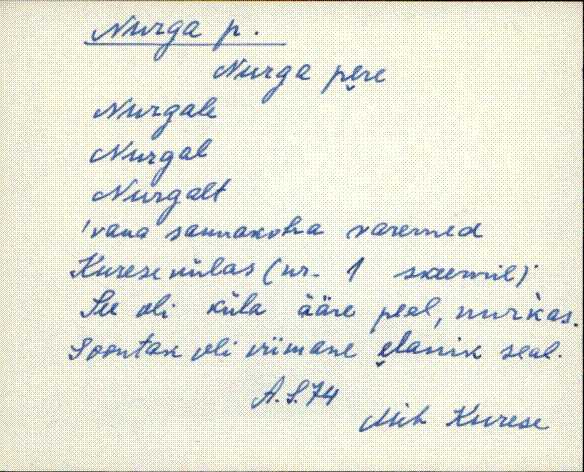 Nurga p.
Nurga pẹre
Nurgale
Nurgal
Nurgalt
'vana saunakoha varemed
Kurese külas (nr. 1 skeemil)'
See oli küla ääre peal, nurkas.
Soontak oli viimane ẹlanik seal.
A.S.74
Mih Kurese